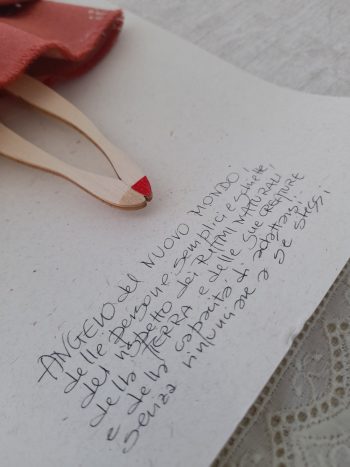 ANGELO del NUOVO MONDO:
delle persone semplici e schiette,
del rispetto dei RITMI NATURALI
della TERRA e delle SUE CREATURE
e della capacità di adattarsi
senza rinunciare a se stessi